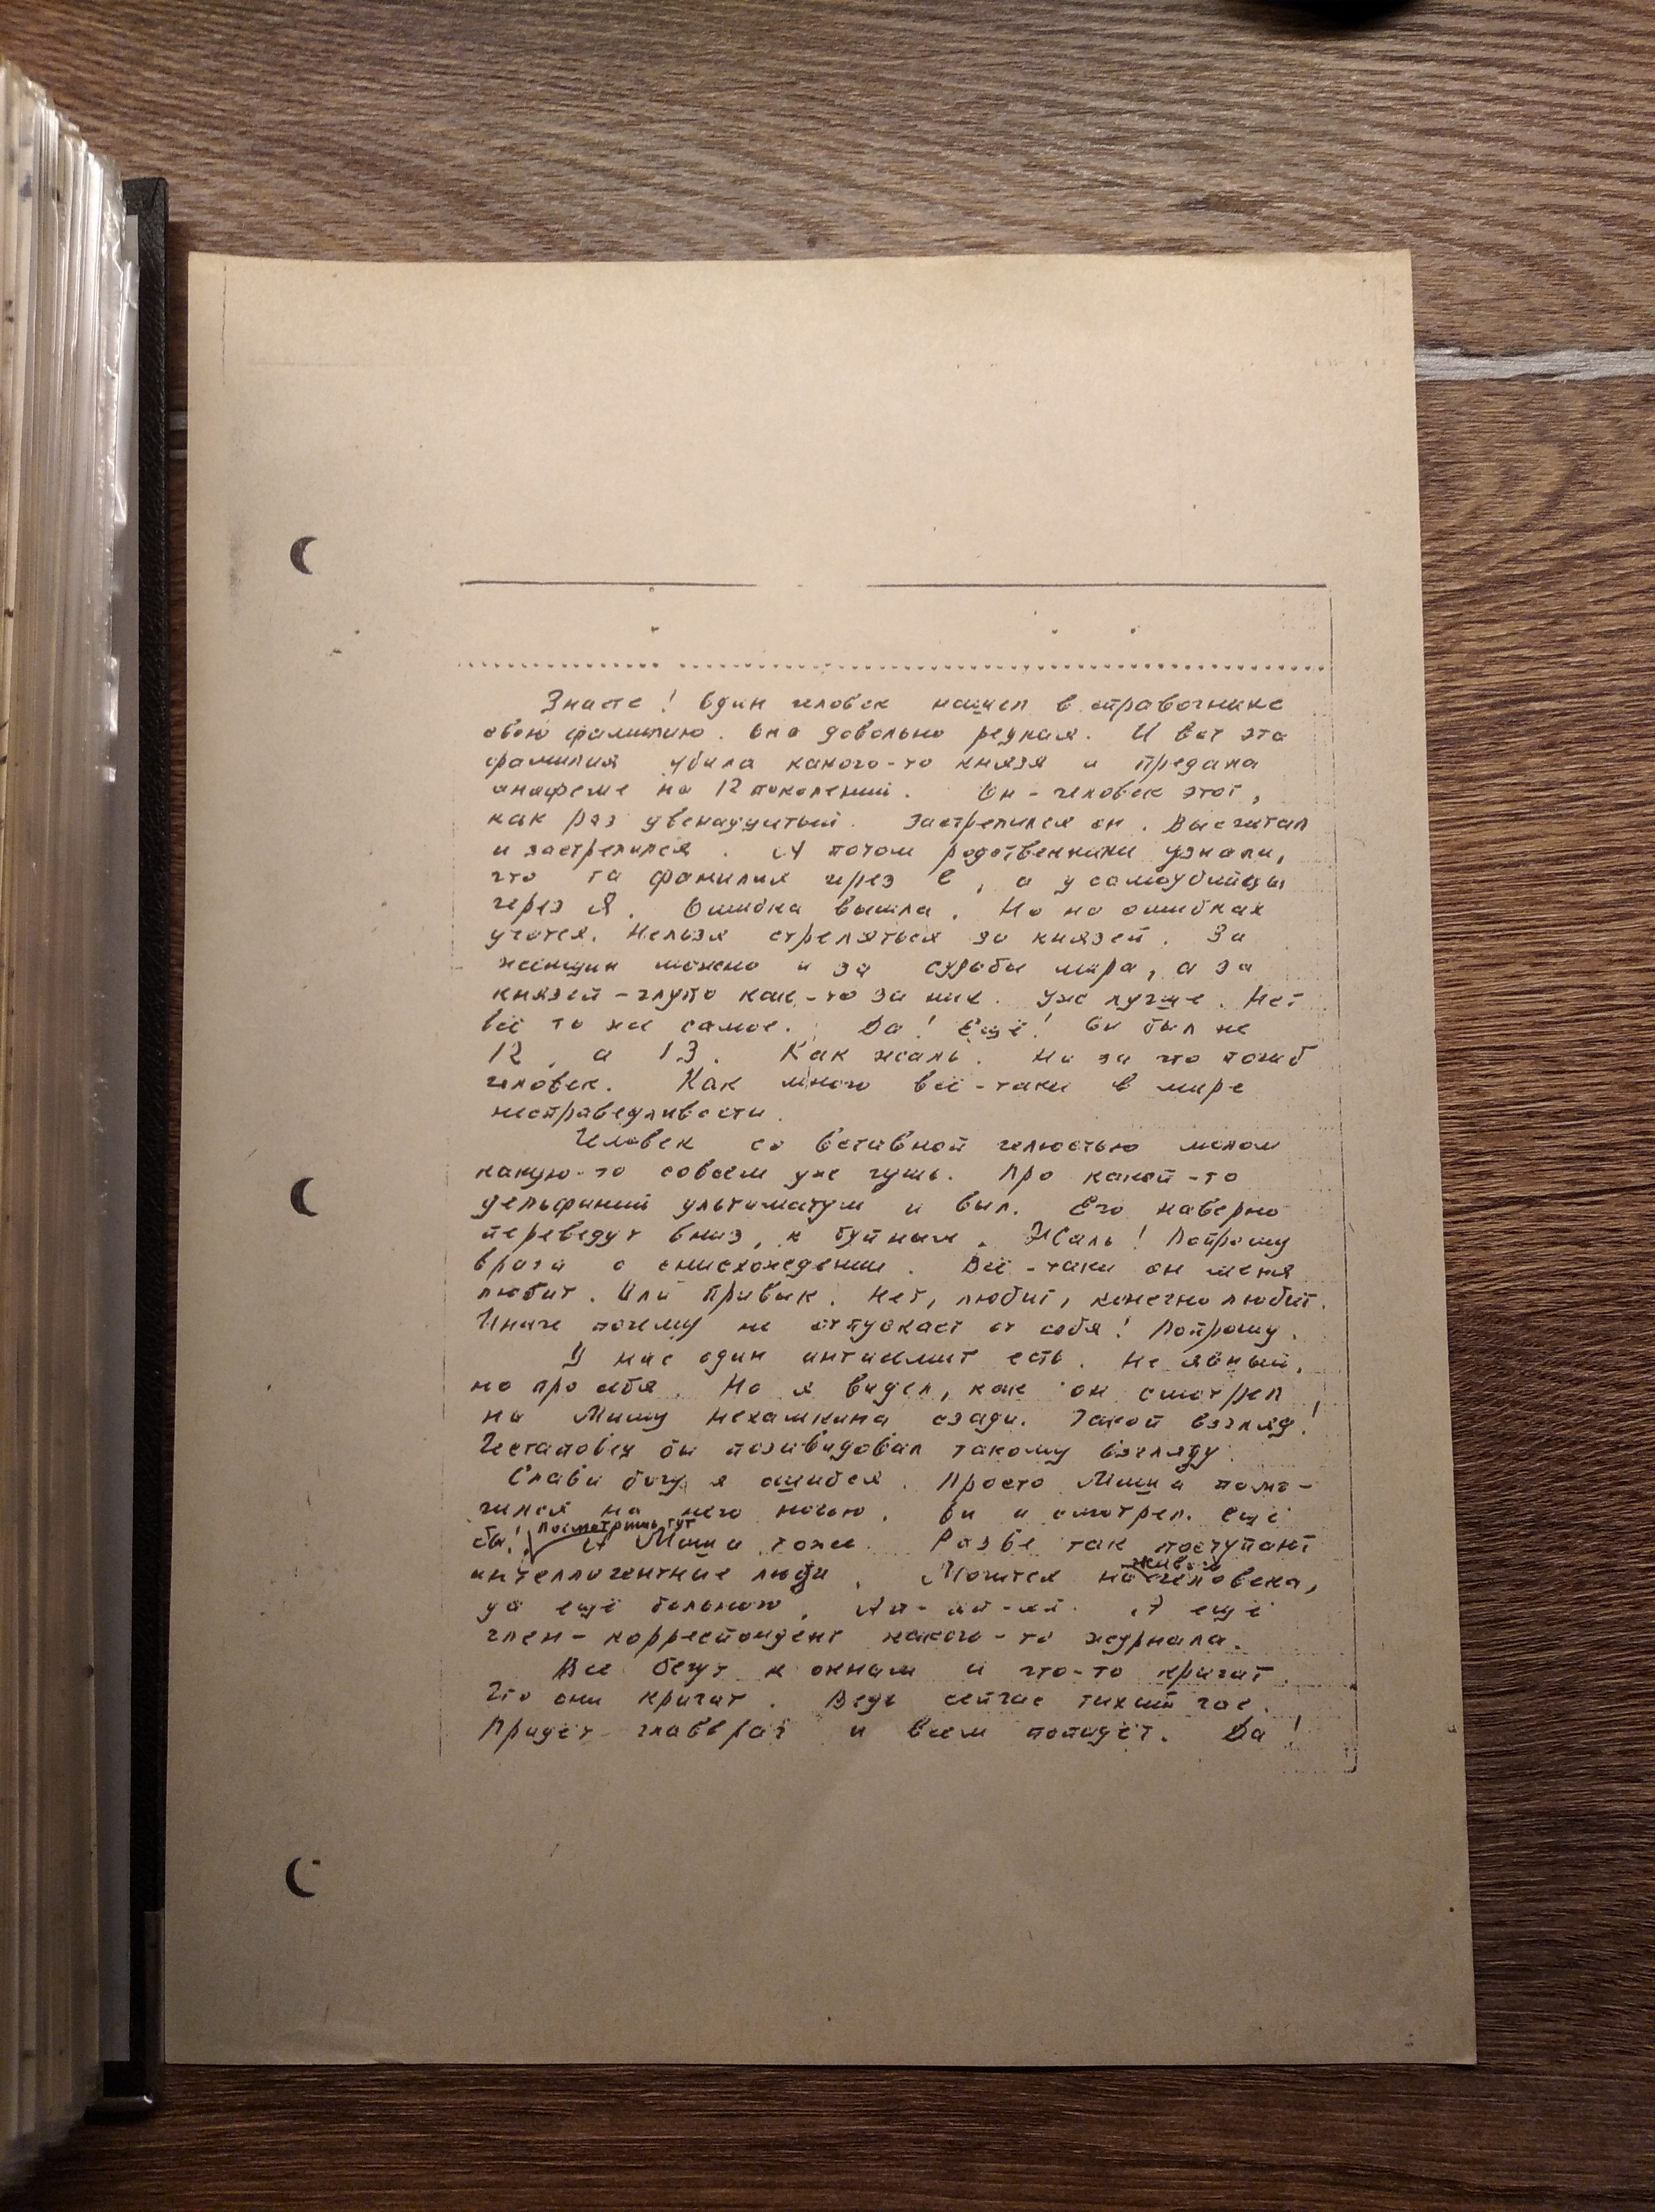 Знаете! Один человек нашел в справочнике
свою фамилию. Она довольно редкая. И вот эта
фамилия убила какого-то князя и предана
анафеме на 12 поколений. Он - человек этот,
как раз двенадцатый. Застрелился он. Высчитал
и застрелился. А потом родственники узнали,
что та фамилия через е, а у самоубийцы
через я. Ошибка вышла. Но на ошибках
учатся. Нельзя стреляться за князей. За
женщин можно и за судьбы мира, а за
князей - глупо как-то за них. Уже лучше. Нет
всё то же самое. Да! Ещё! Он был не
12, а 13. Как жаль. Ни за что погиб
человек. Как много всё-таки в мире
несправедливости.
Человек со вставной челюстью молол
какую-то совсем уже чушь. Про какой-то
дельфиний ультиматум и выл. Его наверно
переведут вниз, к буйным. Жаль! Попрошу
врача о снисхождении. Всё-таки он меня
любит. Или привык. Нет, любит, конечно любит.
Иначе почему не отпускает от себя! Попрошу.
У нас один антисемит есть. Не явный,
но про себя. Но я видел, как он смотрел
на Мишу Нехамкина сзади. Такой взгляд!
Гестаповец бы позавидовал такому взгляду.
Слава богу я ошибся. Просто Миша помо-
чился на него ночью. Он и смотрел. Ещё
бы! посмотришь тут А Миша тоже. Разве так поступают
интеллигентные люди. Мочится на живого человека,
да ещё больного. Ай-ай-яй. А ещё
член-корреспондент какого-то журнала.
Все бегут к окнам и что-то кричат.
Что они кричат. Ведь сейчас тихий час.
Придёт главврач и всем попадёт. Да!